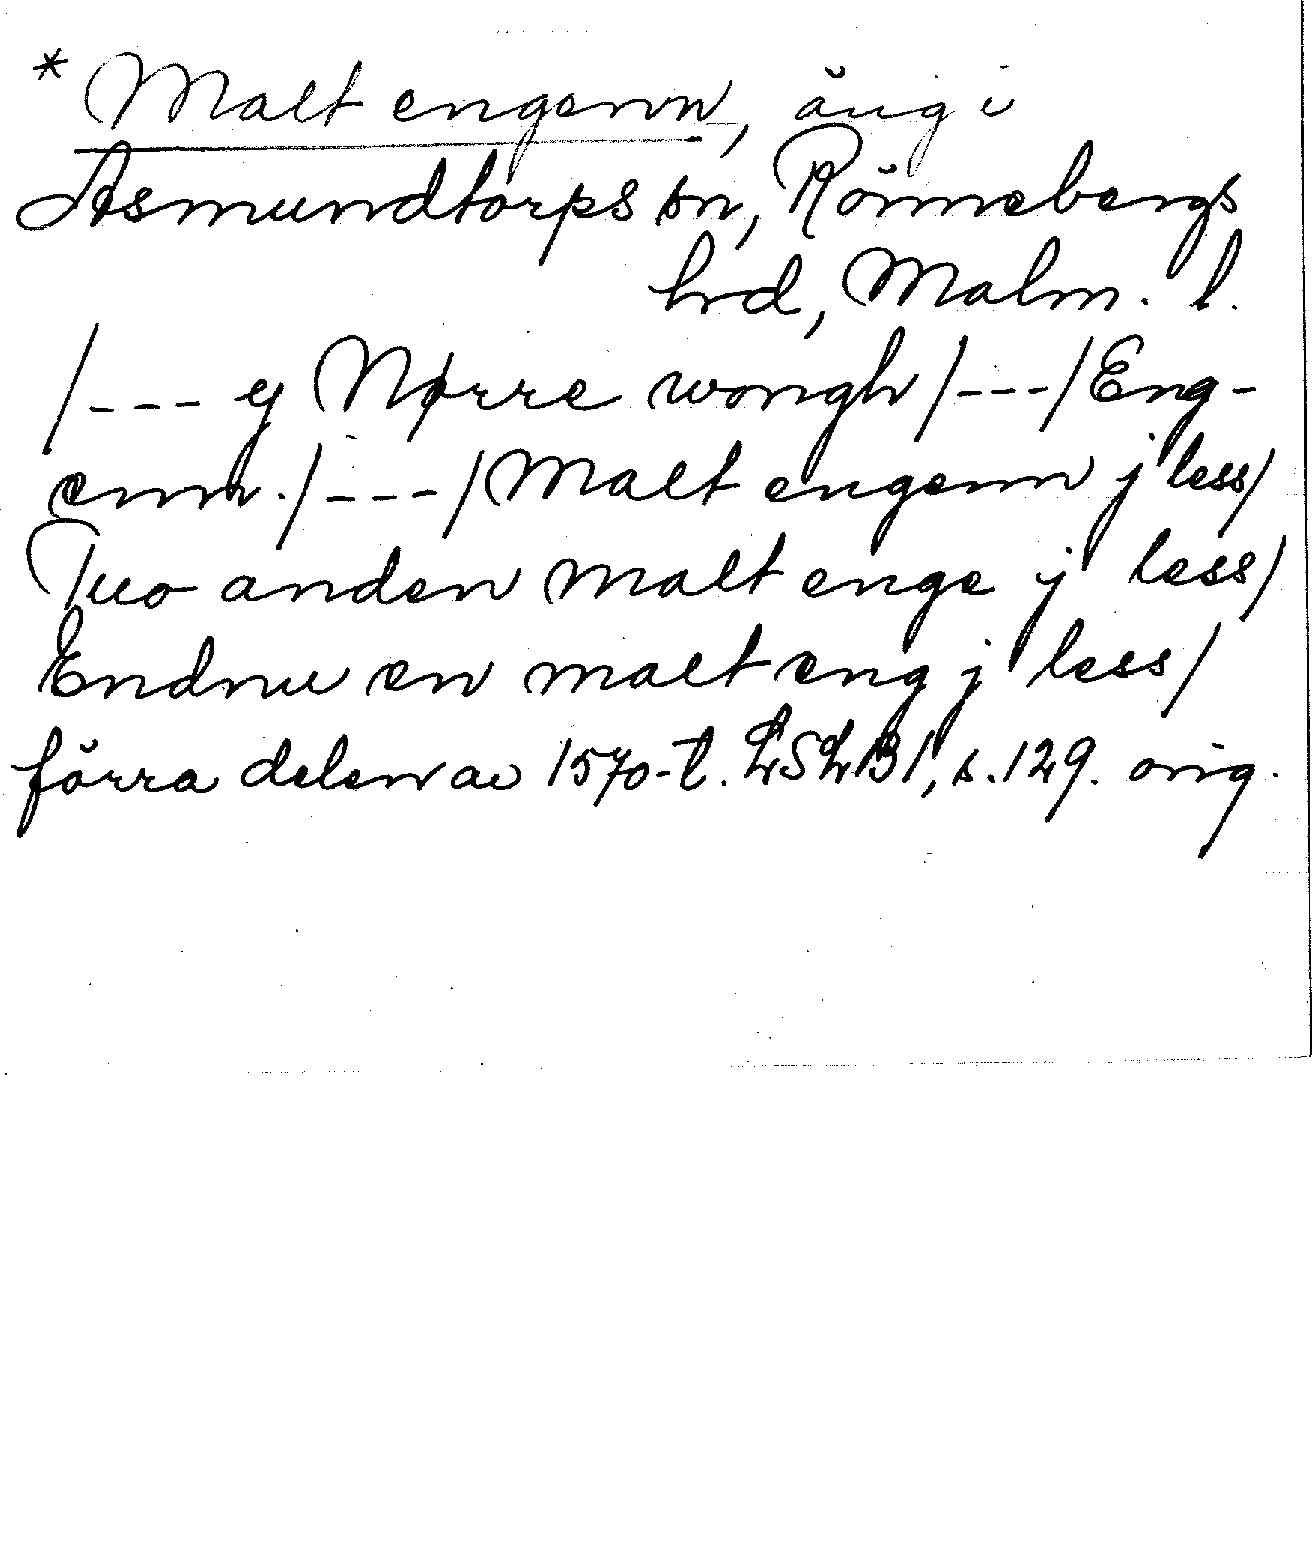 * Malt engenn, äng i
Asmundtorps sn, Rönnebergs
hrd, Malm. l.
/--- ij Nørre wongh /---/ Eng-
enn. /---/ Malt engenn j less/
Tuo anden malt enge ij less/
Endnu en malt eng j less/
förra delen av 1570-t. LSLB1, s.129. orig.